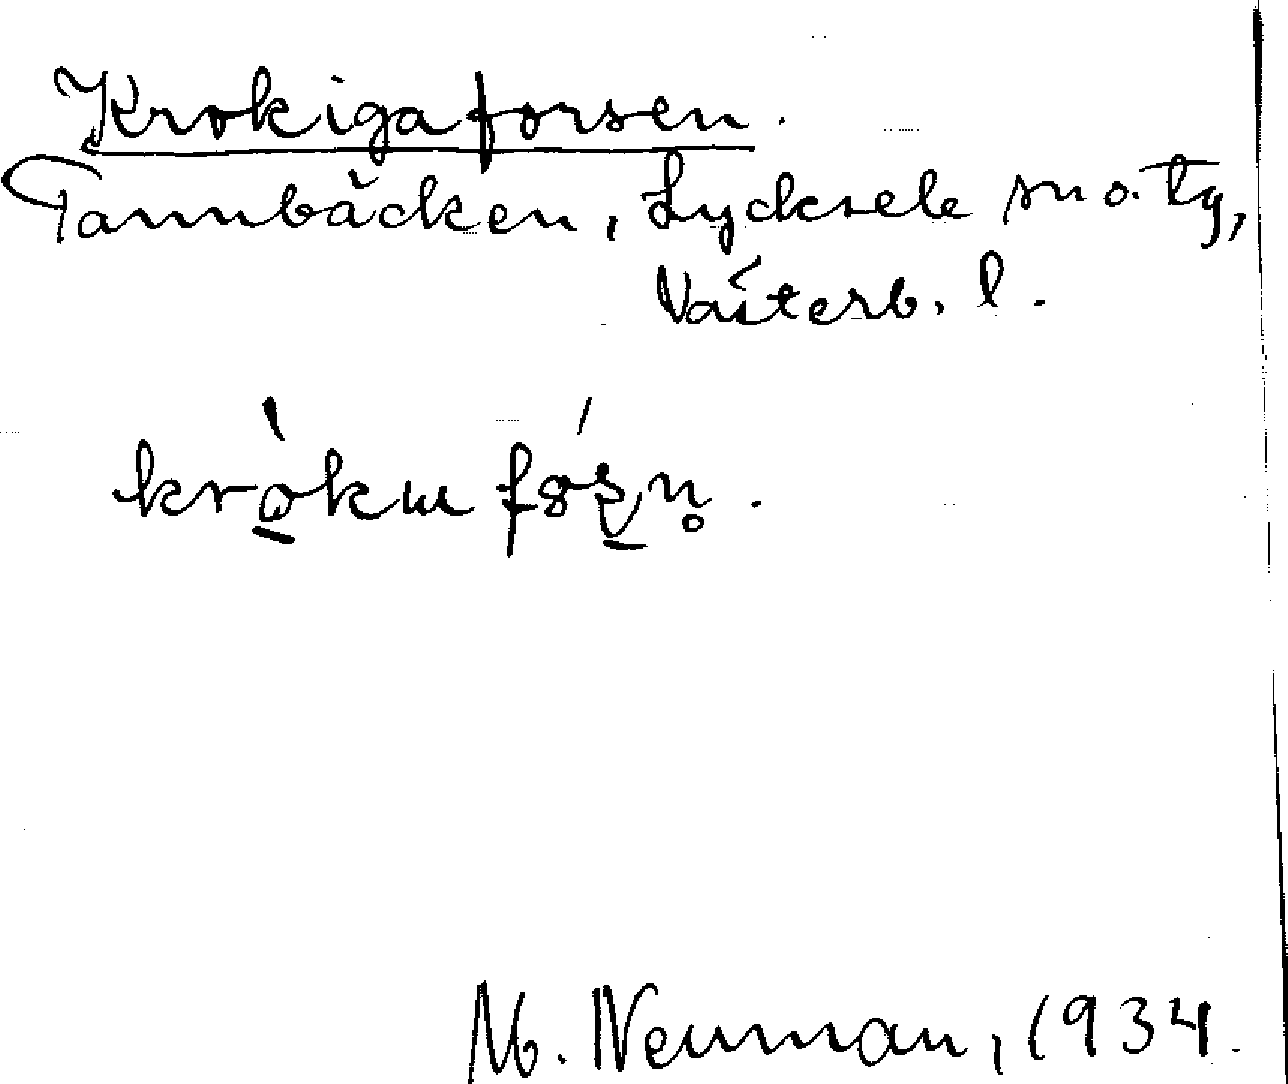 Krokigaforsen.
Tannbäcken, Lycksele sn o. tg,
Västerb. l.
M. Neuman, 1934.